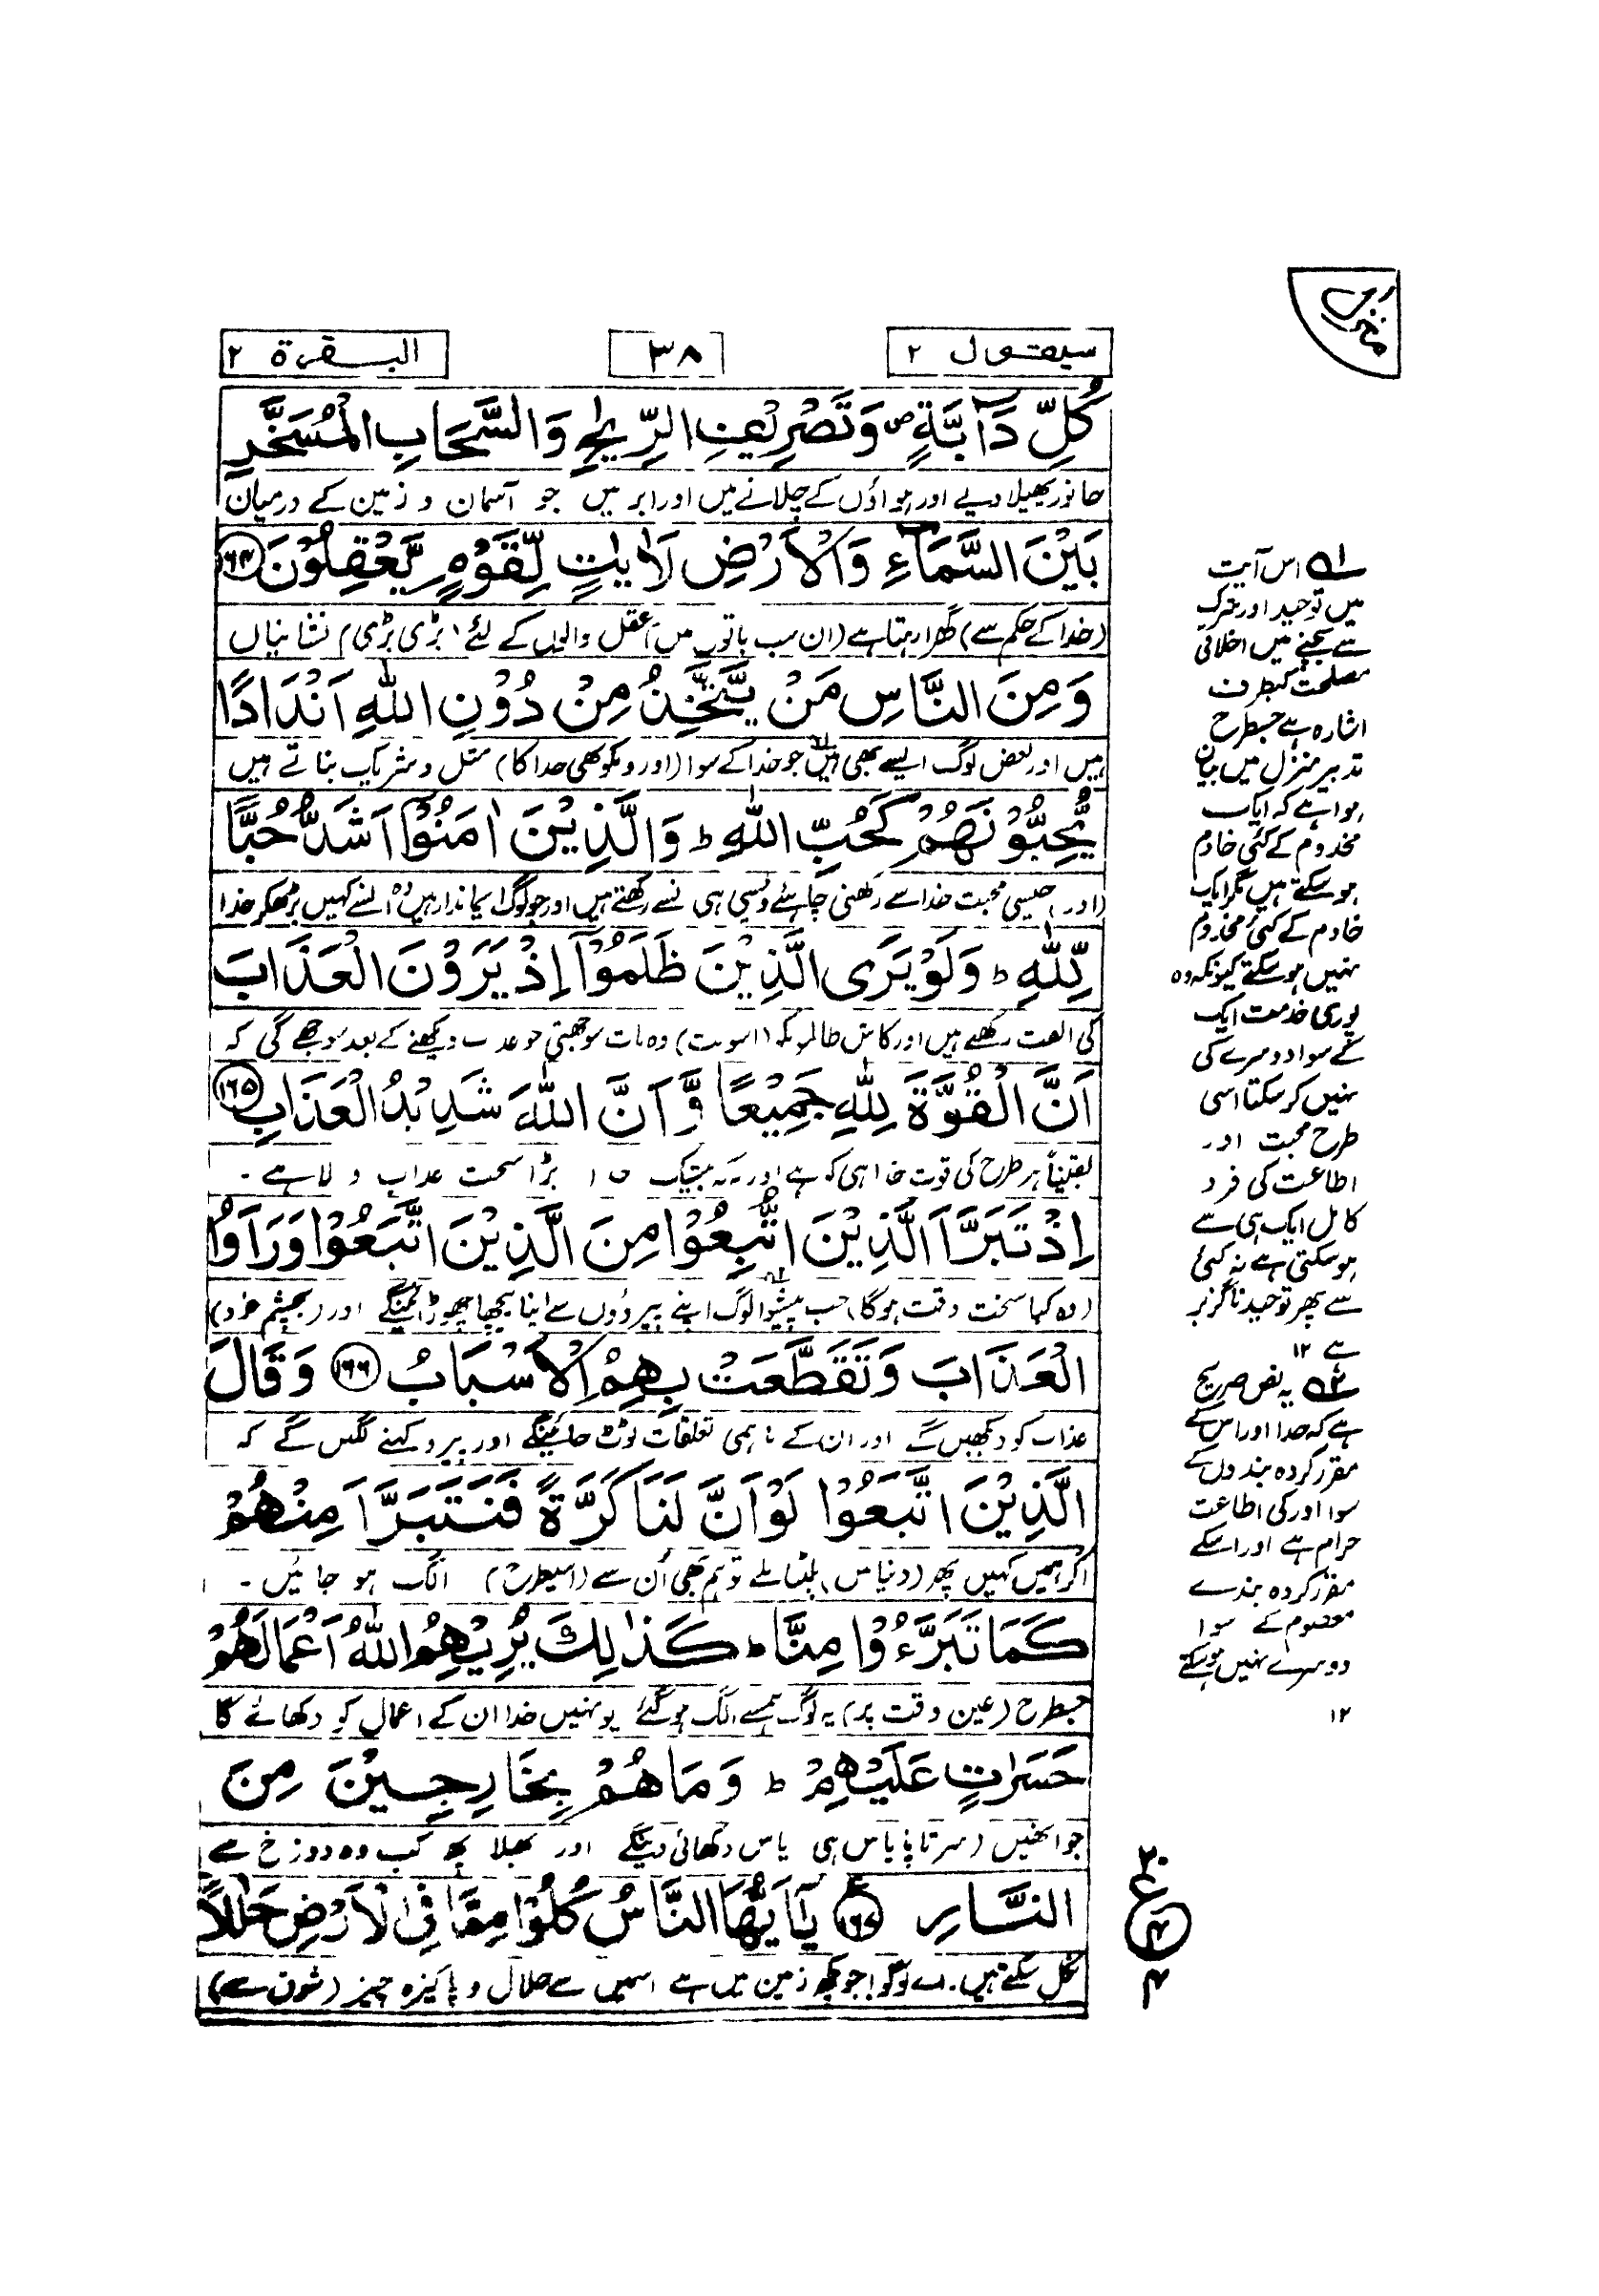 منزل
سیقول ۲
۳۸
البقرة ۲
كُلِّ دَآبَّةٍ ص وَّتَصْرِيْفِ الرِّيٰحِ وَالسَّحَابِ الْمُسَخَّرِ
جانور پھیلا دیے اور ہواؤں کے چلانے میں اور ابر میں جو آسمان و زمین کے درمیان
بَيْنَ السَّمَآءِ وَالْاَرْضِ لَاٰيٰتٍ لِّقَوْمٍ يَّعْقِلُوْنَ ۱۶۴
(خدا کے حکم سے) گھرا رہتا ہے (ان سب باتوں میں) عقل والوں کے لئے (بڑی بڑی) نشانیاں
وَمِنَ النَّاسِ مَنْ يَّتَّخِذُ مِنْ دُوْنِ اللّٰهِ اَنْدَادًا
ہیں اور بعض لوگ ایسے بھی ہیں۱ جو خدا کے سوا (اورونکو بھی خدا کا) مثل و شریک بناتے ہیں
يُّحِبُّوْنَهُمْ كَحُبِّ اللّٰهِ ط وَالَّذِيْنَ اٰمَنُوْٓا اَشَدُّ حُبًّا
(اور) جیسی محبت خدا سے رکھنی چاہئے ویسی ہی انسے رکھتے ہیں اور جو لوگ ایماندار ہیں وہ انسے کہیں بڑھکر خدا
لِّلّٰهِ ط وَلَوْ يَرَى الَّذِيْنَ ظَلَمُوْٓا اِذْ يَرَوْنَ الْعَذَابَ
کی الفت رکھتے ہیں اور کاش ظالمونکو (اسوقت) وہ بات سوجھتی جو عذاب دیکھنے کے بعد سوجھے گی کہ
اَنَّ الْقُوَّةَ لِلّٰهِ جَمِيْعًا وَّاَنَّ اللّٰهَ شَدِيْدُ الْعَذَابِ ۱۶۵
یقیناً ہر طرح کی قوت خدا ہی کو ہے اور یہ کہ بیشک خدا بڑا سخت عذاب والا ہے ۔
اِذْ تَبَرَّاَ الَّذِيْنَ اتُّبِعُوْا مِنَ الَّذِيْنَ اتَّبَعُوْا وَرَاَوُا
(وہ کیا سخت وقت ہوگا) جب پیشوا لوگ۲ اپنے پیروؤں سے اپنا پیچھا چھوڑائینگے اور (بچشم خود)
الْعَذَابَ وَتَقَطَّعَتْ بِهِمُ الْاَسْبَابُ ۱۶۶ وَقَالَ
عذاب کو دیکھیں گے اور ان کے باہمی تعلقات ٹوٹ جائینگے اور پیرو کہنے لگیں گے کہ
الَّذِيْنَ اتَّبَعُوْا لَوْ اَنَّ لَنَا كَرَّةً فَنَتَبَرَّاَ مِنْهُمْ
اگر ہمیں کہیں پھر (دنیا میں) پلٹنا ملے تو ہم بھی اُن سے (اسیطرح) الگ ہو جائیں ۔
كَمَا تَبَرَّءُوْا مِنَّا ط كَذٰلِكَ يُرِيْهِمُ اللّٰهُ اَعْمَالَهُمْ
جسطرح (عین وقت پر) یہ لوگ ہمسے الگ ہو گئے یونہیں خدا ان کے اعمال کو دکھائے گا
حَسَرٰتٍ عَلَيْهِمْ ط وَمَا هُمْ بِخَارِجِيْنَ مِنَ
جو انھیں (سرتاپا یاس ہی) یاس دکھائی دینگے اور بھلا پھر کب وہ دوزخ سے
النَّارِ ۱۶۷ ع يٰٓاَيُّهَا النَّاسُ كُلُوْا مِمَّا فِى الْاَرْضِ حَلٰلًا
نکل سکتے ہیں. اے لوگو! جو کچھ زمین میں ہے اسمیں سے حلال و پاکیزہ چیز (شوق سے)
۱ اس آیت
میں توحید اور شرک
سے بچنے میں اخلاقی
مصلحت کیطرف
اشارہ ہے جسطرح
تدبیر منزل میں بیان
ہوا ہے کہ ایک
مخدوم کے کئی خادم
ہو سکتے ہیں مگر ایک
خادم کے کئی مخدوم
نہیں ہو سکتے کیونکہ وہ
پوری خدمت ایک
کے سوا دوسرے کی
نہیں کر سکتا اسی
طرح محبت اور
اطاعت کی فرد
کامل ایک ہی سے
ہو سکتی ہے نہ کئی
سے پھر توحید ناگزیر
ہے ۱۲
۲ یہ نص صریح
ہے کہ خدا اور اس کے
مقرر کردہ بندوں کے
سوا اور کی اطاعت
حرام ہے اور اسکے
مقرر کردہ بندے
معصوم کے سوا
دوسرے نہیں ہو سکتے
۱۲
۲۰
ع
۴
۴